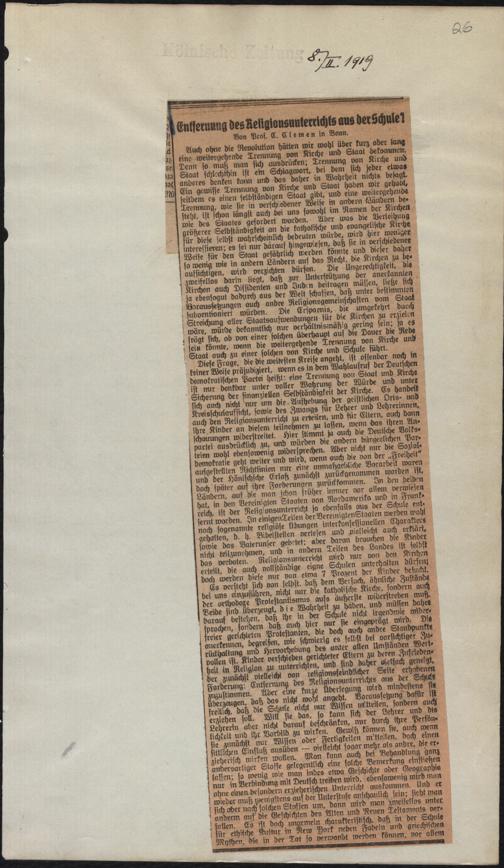 26
Kölnische Zeitung
8./II. 1919
Entfernung des Religionsunterrichts aus der Schule?
Von Prof. C. Clemen in Bonn.
Auch ohne die Revolution hätten wir wohl über kurz oder lang
eine weitergehende Trennung von Kirche und Staat bekommen.
Denn so muß man sich ausdrücken; Trennung von Kirche und
Staat schlechthin ist ein Schlagwort, bei dem sich jeder etwas
anderes denken kann und das daher in Wahrheit nichts besagt.
Ein gewisse Trennung von Kirche und Staat haben wir gehabt,
seitdem es einen selbständigen Staat gibt, und eine weitergehende
Trennung, wie sie in verschiedener Weise in andern Ländern be-
steht, ist schon längst auch bei uns sowohl im Namen der Kirchen
wie des Staates gefordert worden. Aber was die Verleihung
größerer Selbständigkeit an die katholische und evangelische Kirche
für diese selbst wahrscheinlich bedeuten würde, wird hier weniger
interessieren; es sei nur darauf hingewiesen, daß sie in verschiedener
Weise für den Staat gefährlich werden könnte und dieser daher
so wenig wie in andern Ländern auf das Recht, die Kirchen zu be-
aufsichtigen, wird verzichten dürfen. Die Ungerechtigkeit, die
zweifellos darin liegt, daß zur Unterstützung der anerkannten
Kirchen auch Dissidenten und Juden beitragen müssen, ließe sich
ja ebensogut dadurch aus der Welt schaffen, daß unter bestimmten
Voraussetzungen auch andre Religionsgemeinschaften vom Staat
subventioniert würden. Die Ersparnis, die umgekehrt durch
Streichung aller Staatsaufwendungen für die Kirchen zu erzielen
wäre, würde bekanntlich nur verhältnismäßig gering sein; ja es
frägt sich, ob von einer solchen überhaupt auf die Dauer die Rede
sein könnte, wenn die weitergehende Trennung von Kirche und
Staat auch zu einer solchen von Kirche und Schule führt.
Diese Frage, die die weitesten Kreise angeht, ist offenbar noch in
keiner Weise präjudiziert, wenn es in dem Wahlaufruf der Deutschen
demokratischen Partei heißt: eine Trennung von Staat und Kirche
ist nur denkbar unter voller Wahrung der Würde und unter
Sicherung der finanziellen Selbständigkeit der Kirche. Es handelt
sich auch nicht nur um die Aufhebung der geistlichen Orts- und
Kreisschulaufsicht, sowie des Zwangs für Lehrer und Lehrerinnen,
auch den Religionsunterricht zu erteilen, und für Eltern, auch dann
ihre Kinder an diesem teilnehmen zu lassen, wenn das ihren An-
schauungen widerstreitet. Hier stimmt ja auch die Deutsche Volks-
partei ausdrücklich zu, und würden die andern bürgerlichen Par-
teien wohl ebensowenig widersprechen. Aber nicht nur die Sozial-
demokratie geht weiter und wird, wenn auch die von der „Freiheit"
aufgestellten Richtlinien nur eine unmaßgebliche Vorarbeit waren
und der Hänischsche Erlaß zunächst zurückgenommen worden ist,
doch später auf ihre Forderungen zurückkommen. In den beiden
Ländern, auf die man schon früher immer vor allem verwiesen
hat, in den Vereinigten Staaten von Nordamerika und in Frank-
reich, ist der Religionsunterricht ja ebenfalls aus der Schule ent-
fernt worden. In einigen Teilen der Vereinigten Staaten werden wohl
noch sogenannte religiöse Übungen interkonfessionellen Charakters
gehalten, d. h. Bibelstellen verlesen und vielleicht auch erklärt,
sowie das Vaterunser gebetet; aber daran brauchen die Kinder
nicht teilzunehmen, und in andern Teilen des Landes ist selbst
das verboten. Religionsunterricht wird nur von den Kirchen
erteilt, die auch vollständige eigne Schulen unterhalten dürfen;
doch werden diese nur von etwa 7 Prozent der Kinder besucht.
Es versteht sich von selbst, daß dem Versuch, ähnliche Zustände
bei uns einzuführen, nicht nur die katholische Kirche, sondern auch
der orthodoxe Protestantismus aufs äußerste widerstreben muß.
Beide sind überzeugt, die Wahrheit zu haben, und müssen daher
darauf bestehen, daß ihr in der Schule nicht irgendwie wider-
sprochen, sondern daß auch hier nur sie eingeprägt wird. Die
freier gerichteten Protestanten, die doch auch andre Standpunkte
anerkennen, begreifen, wie schmerzlich es selbst bei vorsichtiger Zu-
rückhaltung und Hervorhebung des unter allen Umständen Wert-
vollen ist, Kinder verschieden gerichteter Eltern zu deren Zufrieden-
heit in Religion zu unterrichten, und sind daher vielfach geneigt,
der zunächst vielleicht von religionsfeindlicher Seite erhobenen
Forderung: Entfernung des Religionsunterrichts aus der Schule
zuzustimmen. Aber eine kurze Überlegung wird mindestens sie
überzeugen, daß das nicht wohl angeht. Voraussetzung dafür ist
freilich, daß die Schule nicht nur Wissen mitteilen, sondern auch
erziehen soll. Will sie das, so kann sich der Lehrer und die
Lehrerin aber nicht darauf beschränken, nur durch ihre Persön-
lichkeit und ihr Vorbild zu wirken. Gewiß können sie, auch wenn
sie zunächst nur Wissen oder Fertigkeiten mitteilen, doch einen
sittlichen Einfluß ausüben — vielleicht sogar mehr als andre, die er-
zieherisch wirken wollen. Man kann auch bei Behandlung ganz
anderweitiger Stoffe gelegentlich eine solche Bemerkung einfließen
lassen; so wenig wie man indes etwa Geschichte oder Geographie
nur in Verbindung mit Deutsch treiben wird, ebensowenig wird man
ohne einen besondern erzieherischen Unterricht auskommen. Und er
wieder muß wenigstens auf der Unterstufe anschaulich sein; sieht man
sich aber nach solchen Stoffen um, dann wird man zweifellos unter
anderm auf die Geschichten des Alten und Neuen Testaments ver-
fallen. Es ist doch ungemein charakteristisch, daß in der Schule
für ethische Kultur in New York neben Fabeln und griechischen
Mythen, die in der Tat so verwandt werden können, vor allem